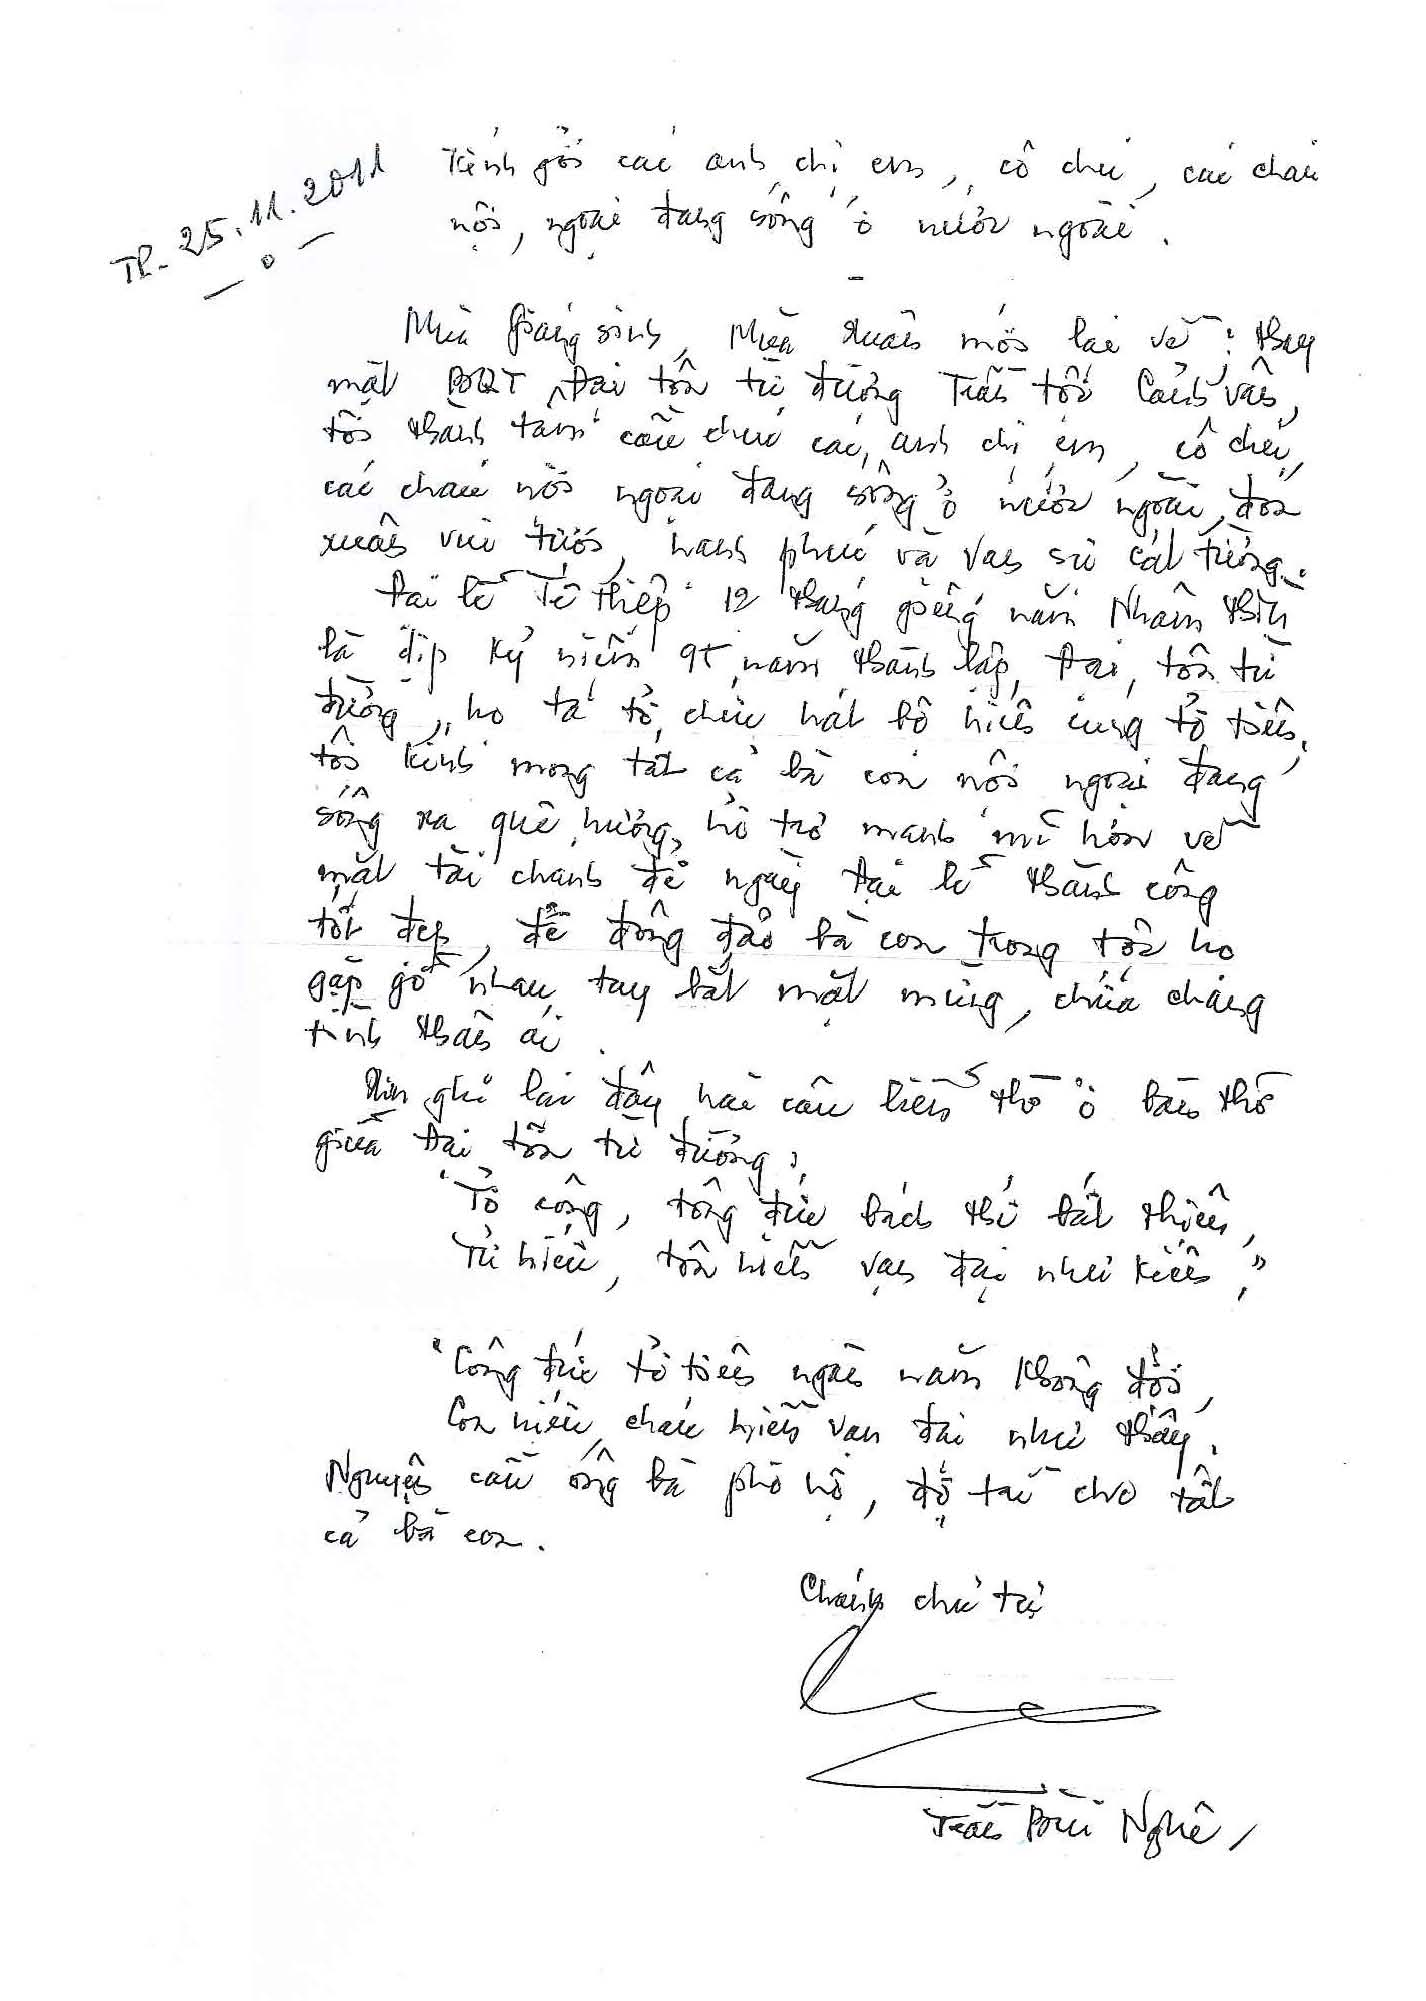 TP. 25.11.2011
Kính gởi các anh chị em, cô chú, các cháu
nội, ngoại đang sống ở nước ngoài.
Mùa Giáng sinh, Mùa Xuân mới lại về; thay
mặt BQT Đại tôn từ đường Trần tộc Cảnh Vân,
tôi thành tâm cầu chúc các anh chị em, cô chú,
các cháu nội ngoại đang sống ở nước ngoài, đón
xuân vui tươi, hạnh phúc và vạn sự cát tường.
Đại lễ Tế Hiệp 12 tháng giêng năm Nhâm Thìn
là dịp kỷ niệm 95 năm thành lập Đại tôn từ
đường, họ ta tổ chức hát bộ hiến cúng tổ tiên,
tôi kính mong tất cả bà con nội ngoại đang
sống xa quê hương, hổ trợ mạnh mẽ hơn về
mặt tài chánh để ngày Đại lễ thành công
tốt đẹp, để đông đảo bà con trong tộc họ
gặp gỡ nhau, tay bắt mặt mừng, chứa chang
tình thân ái.
Xin ghi lại đây hai câu liễn thờ ở bàn thờ
giữa Đại tôn từ đường:
"Tổ công, tông đức bách thế bất thiên,
Tử hiếu, tôn hiền vạn đại như kiến,"
"Công đức tổ tiên ngàn năm không đổi,
Con hiếu cháu hiền vạn đại như thấy.
Nguyện cầu ông bà phò hộ, độ trì cho tất
cả bà con.
Chánh chủ tự
Trần Bùi Nghê